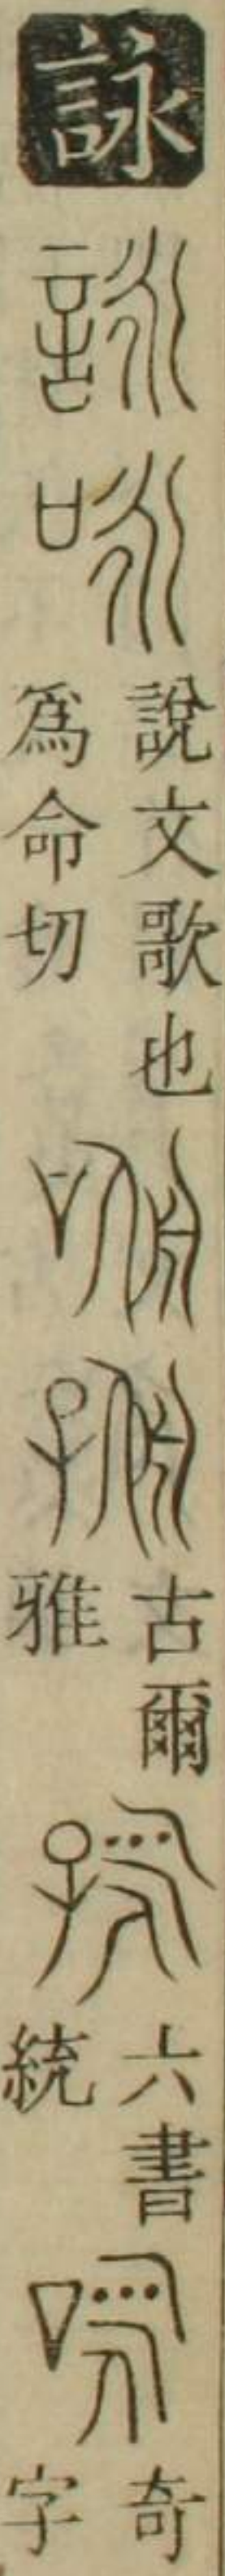 詠
詠
咏
說文歌也
爲命切
古爾
雅
六書
統
奇
字